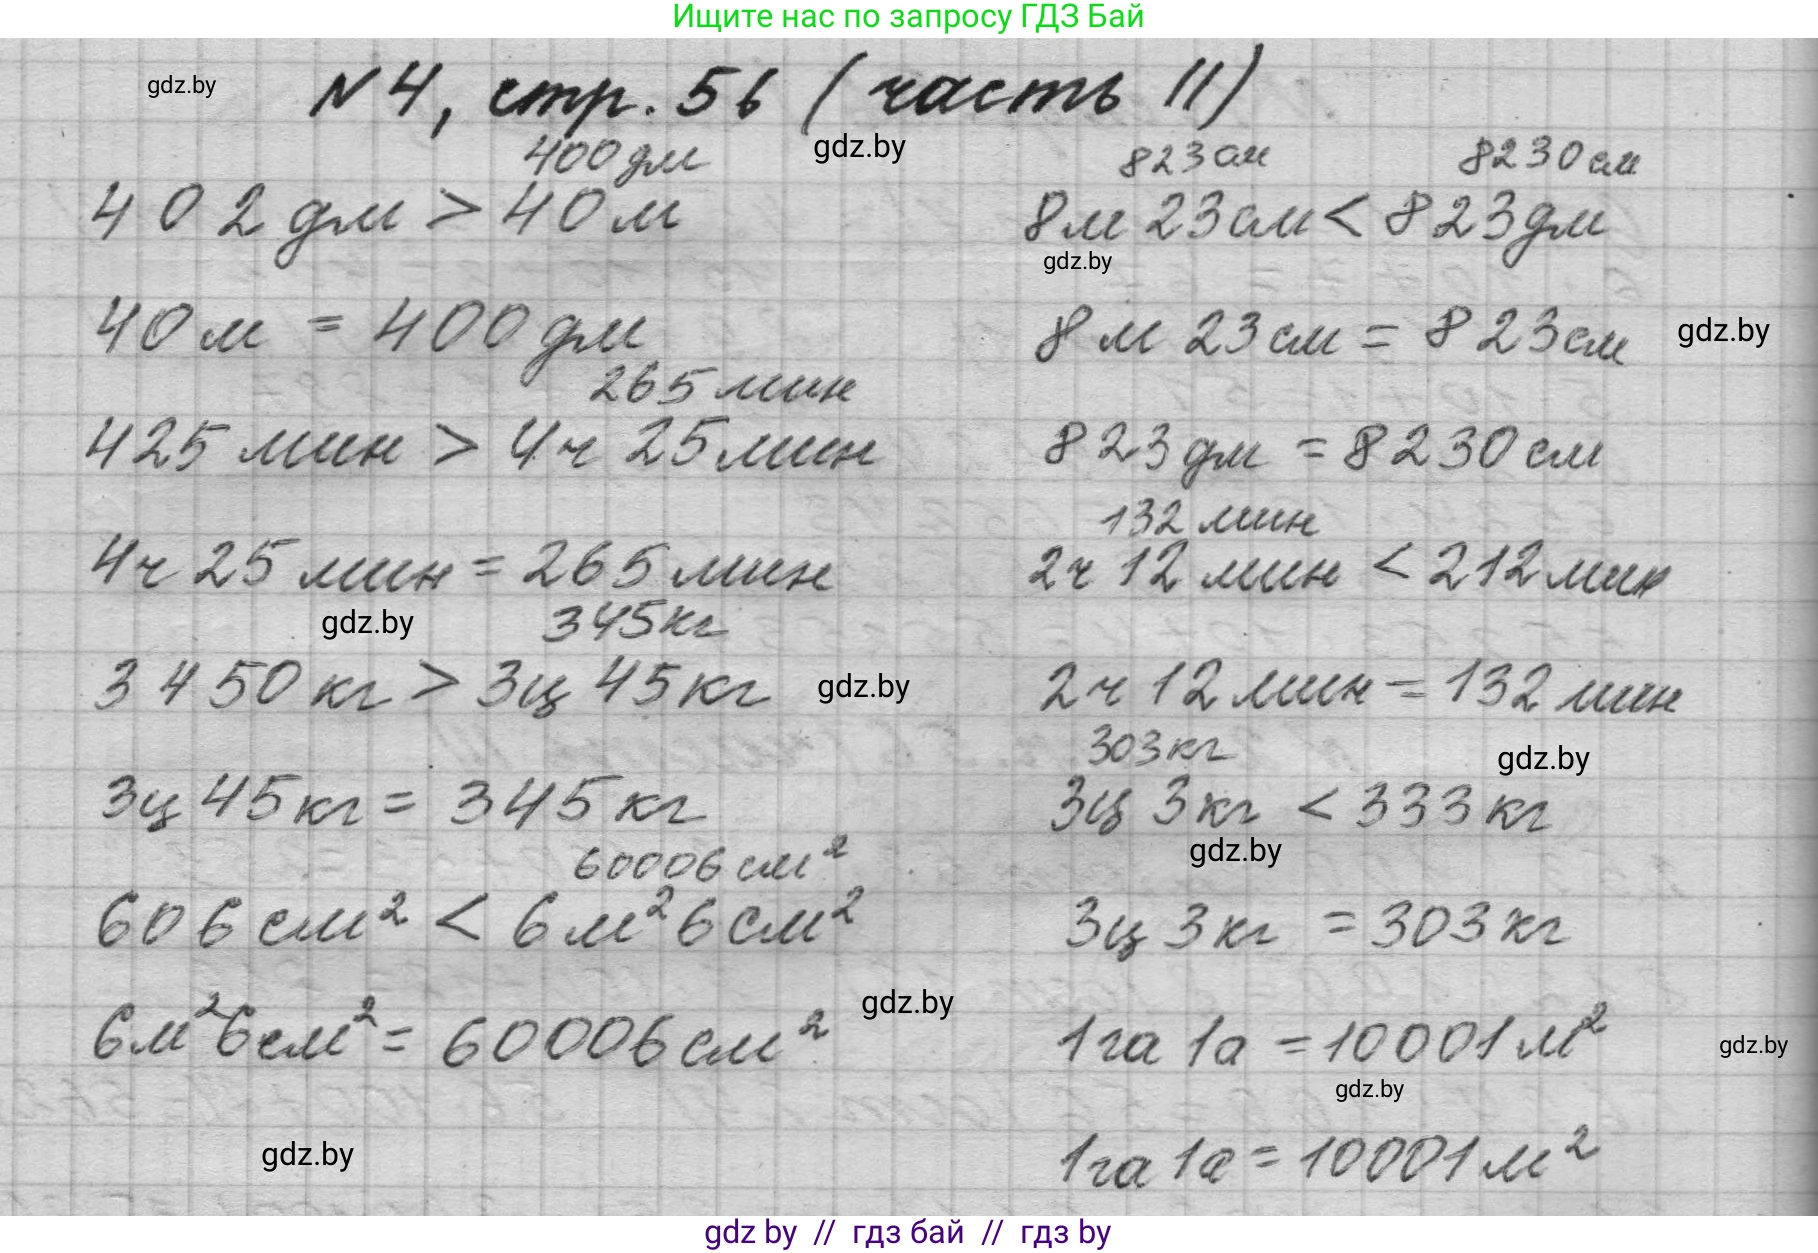 Ищите нас по запросу ГДЗ Бай
gdz.by
N 4, стр. 56 (часть II)
gdz.by
400 дм
402 дм > 40 м
40 м = 400 дм
265 мин
425 мин > 4 ч 25 мин
4 ч 25 мин = 265 мин
gdz.by
345 кг
3450 кг > 3 ц 45 кг
gdz.by
3 ц 45 кг = 345 кг
60006 см²
606 см² < 6 м² 6 см²
6 м² 6 см² = 60006 см²
gdz.by
gdz.by
823 см 8230 см
8 м 23 см < 823 дм
gdz.by
8 м 23 см = 823 см
gdz.by
823 дм = 8230 см
132 мин
2 ч 12 мин < 212 мин
2 ч 12 мин = 132 мин
303 кг
gdz.by
3 ц 3 кг < 333 кг
gdz.by
3 ц 3 кг = 303 кг
1 га 1 а = 10001 м²
gdz.by
gdz.by
1 га 1 а = 10001 м²
gdz by // гдз бай // гдз by